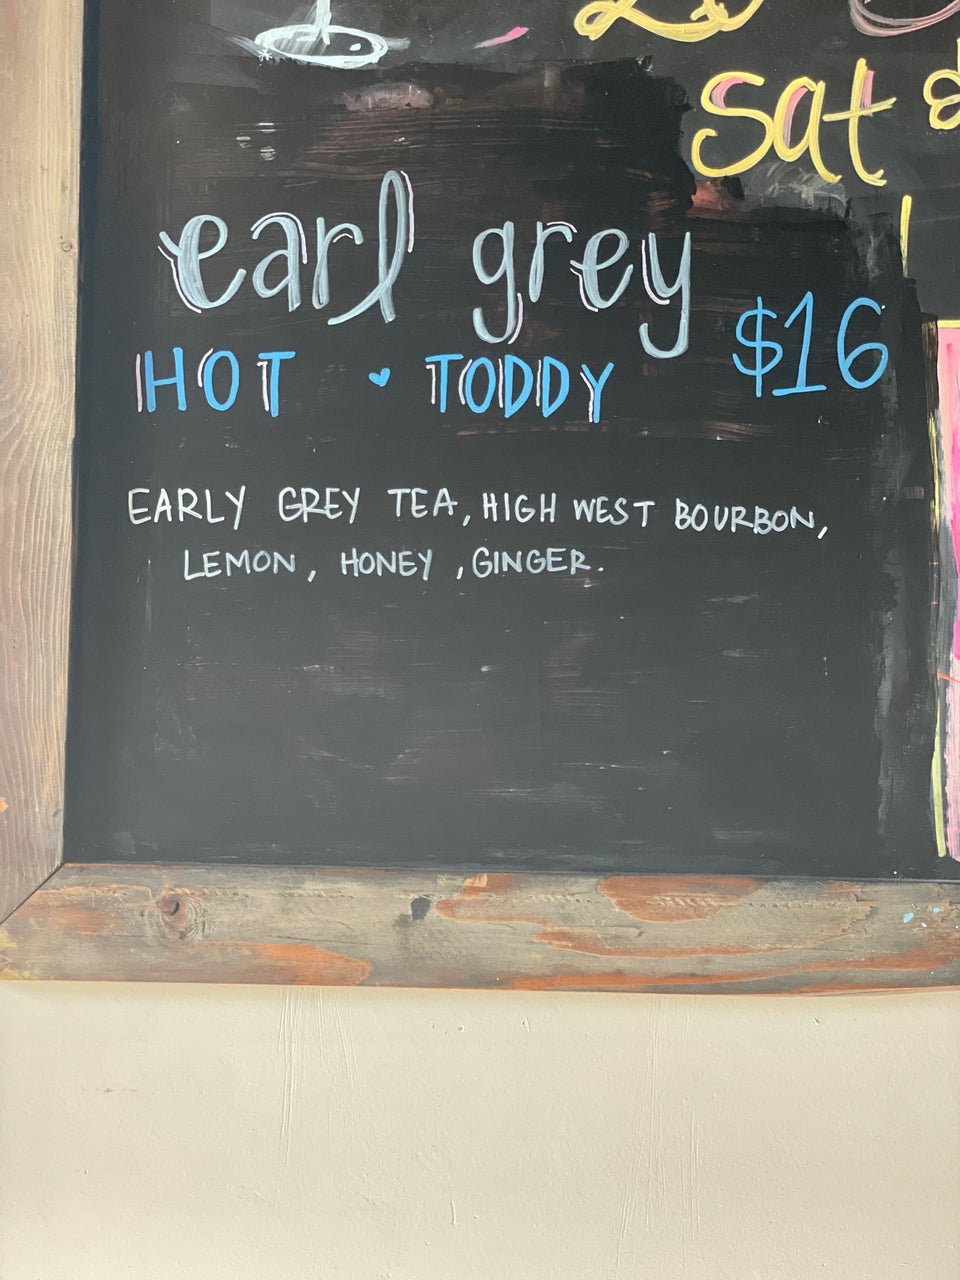 sat
earl grey
HOT TODDY $16
EARLY GREY TEA, HIGH WEST BOURBON,
LEMON, HONEY, GINGER.